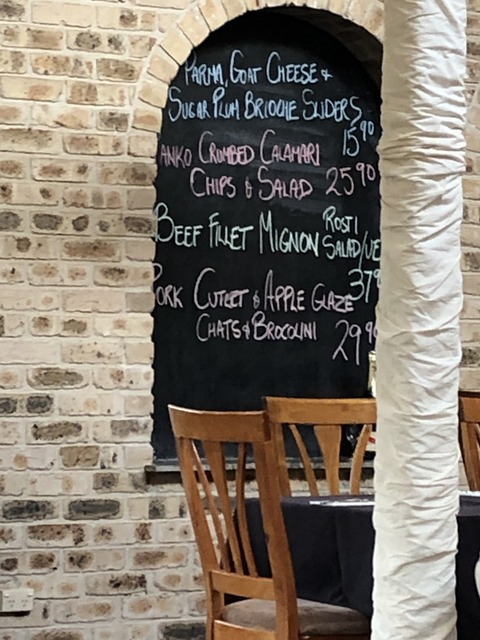 PARMA, GOAT CHEESE &
SUGAR PLUM BRIOCHE SLIDERS
15 90
ANKO CRUMBED CALAMARI
CHIPS & SALAD 25 90
BEEF FILLET MIGNON ROSTI
SALAD/VE
37 9
PORK CUTLET & APPLE GLAZE
CHATS & BROCOLINI 29 90